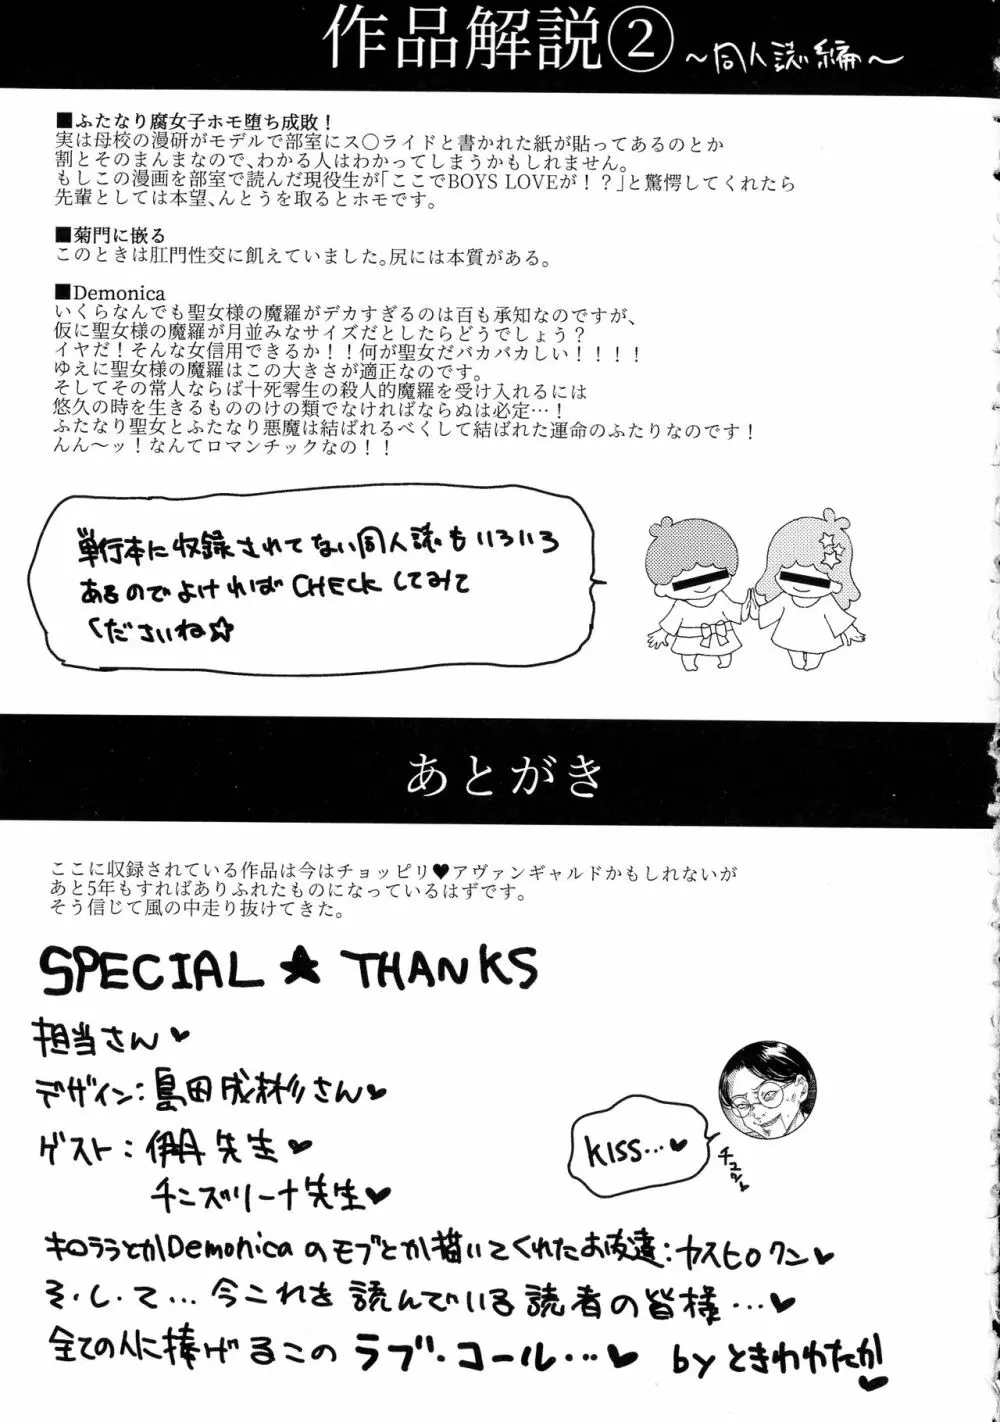 作品解説② ～同人誌編～
■ふたなり腐女子ホモ堕ち成敗！
実は母校の漫研がモデルで部室にス〇ライドと書かれた紙が貼ってあるのとか
割とそのまんまなので、わかる人はわかってしまうかもしれません。
もしこの漫画を部室で読んだ現役生が「ここでBOYS LOVEが！？」と驚愕してくれたら
先輩としては本望、んとうを取るとホモです。
■菊門に嵌る
このときは肛門性交に飢えていました。尻には本質がある。
■Demonica
いくらなんでも聖女様の魔羅がデカすぎるのは百も承知なのですが、
仮に聖女様の魔羅が月並みなサイズだとしたらどうでしょう？
イヤだ！そんな女信用できるか！！何が聖女だバカバカしい！！！！
ゆえに聖女様の魔羅はこの大きさが適正なのです。
そしてその常人ならば十死零生の殺人的魔羅を受け入れるには
悠久の時を生きるもののけの類でなければならぬは必定…！
ふたなり聖女とふたなり悪魔は結ばれるべくして結ばれた運命のふたりなのです！
んん～ッ！なんてロマンチックなの！！
単行本に収録されてない同人誌もいろいろ
あるのでよければCHECKしてみて
くださいね☆
あとがき
ここに収録されている作品は今はチョッピリ♥アヴァンギャルドかもしれないが
あと5年もすればありふれたものになっているはずです。
そう信じて風の中走り抜けてきた。
SPECIAL★THANKS
担当さん♥
デザイン：島田成彬さん♥
ゲスト：伊丹先生♥
チンズリーナ先生♥
kiss…♥
チュッ
キロララとかDemonicaのモブとか描いてくれたお友達：ヤスヒロクン♥
そ・し・て…今これを読んでいる読者の皆様…♥
全ての人に捧げるこのラブ・コール…♥ by ときわわたか♥